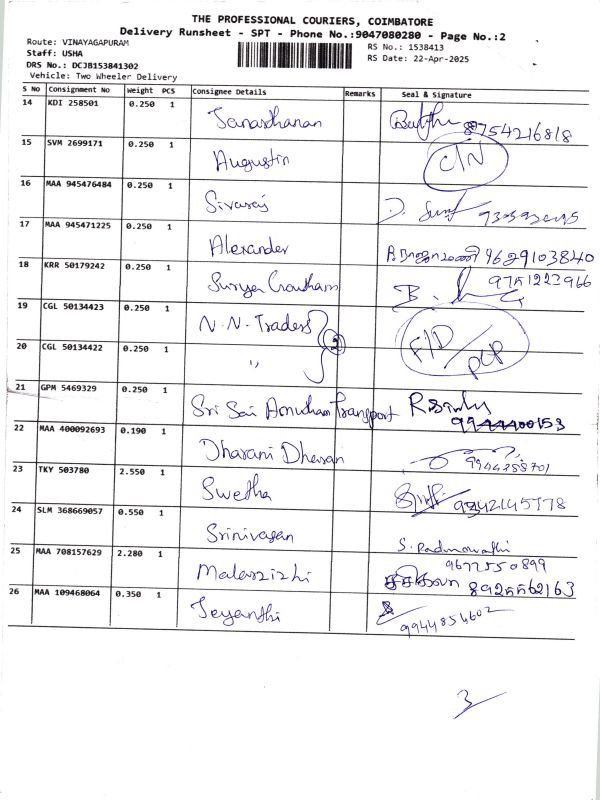 THE PROFESSIONAL COURIERS, COIMBATORE
Delivery Runsheet - SPT - Phone No.:9047080280 - Page No.:2
Route: VINAYAGAPURAM
RS No.: 1538413
Staff: USHA
RS Date: 22-Apr-2025
DRS No.: DCJB153841302
Vehicle: Two Wheeler Delivery
S No Consignment No Weight PCS Consignee Details Remarks Seal & Signature
14 KDI 258501 0.250 1 Janardhanan 8754216818
15 SVM 2699171 0.250 1 Augustin C/N
16 MAA 945476484 0.250 1 Sivaraj
17 MAA 945471225 0.250 1 Alexander 9629103840
18 KRR 50179242 0.250 1 Surya Gowtham 9751223966
19 CGL 50134423 0.250 1 N.N. Traders 2 F/D / PCP
20 CGL 50134422 0.250 1 "
21 GPM 5469329 0.250 1 Sri Sai Transport
22 MAA 400092693 0.190 1 Dharani Dharan 9944288701
23 TKY 503780 2.550 1 Swetha
24 SLM 368669057 0.550 1 Srinivasan S. Padmavathi
9677550899
25 MAA 708157629 2.280 1 Malarvizhi சசிகலா 8925562163
26 MAA 109468064 0.350 1 Jeyanthi 9944854602
3